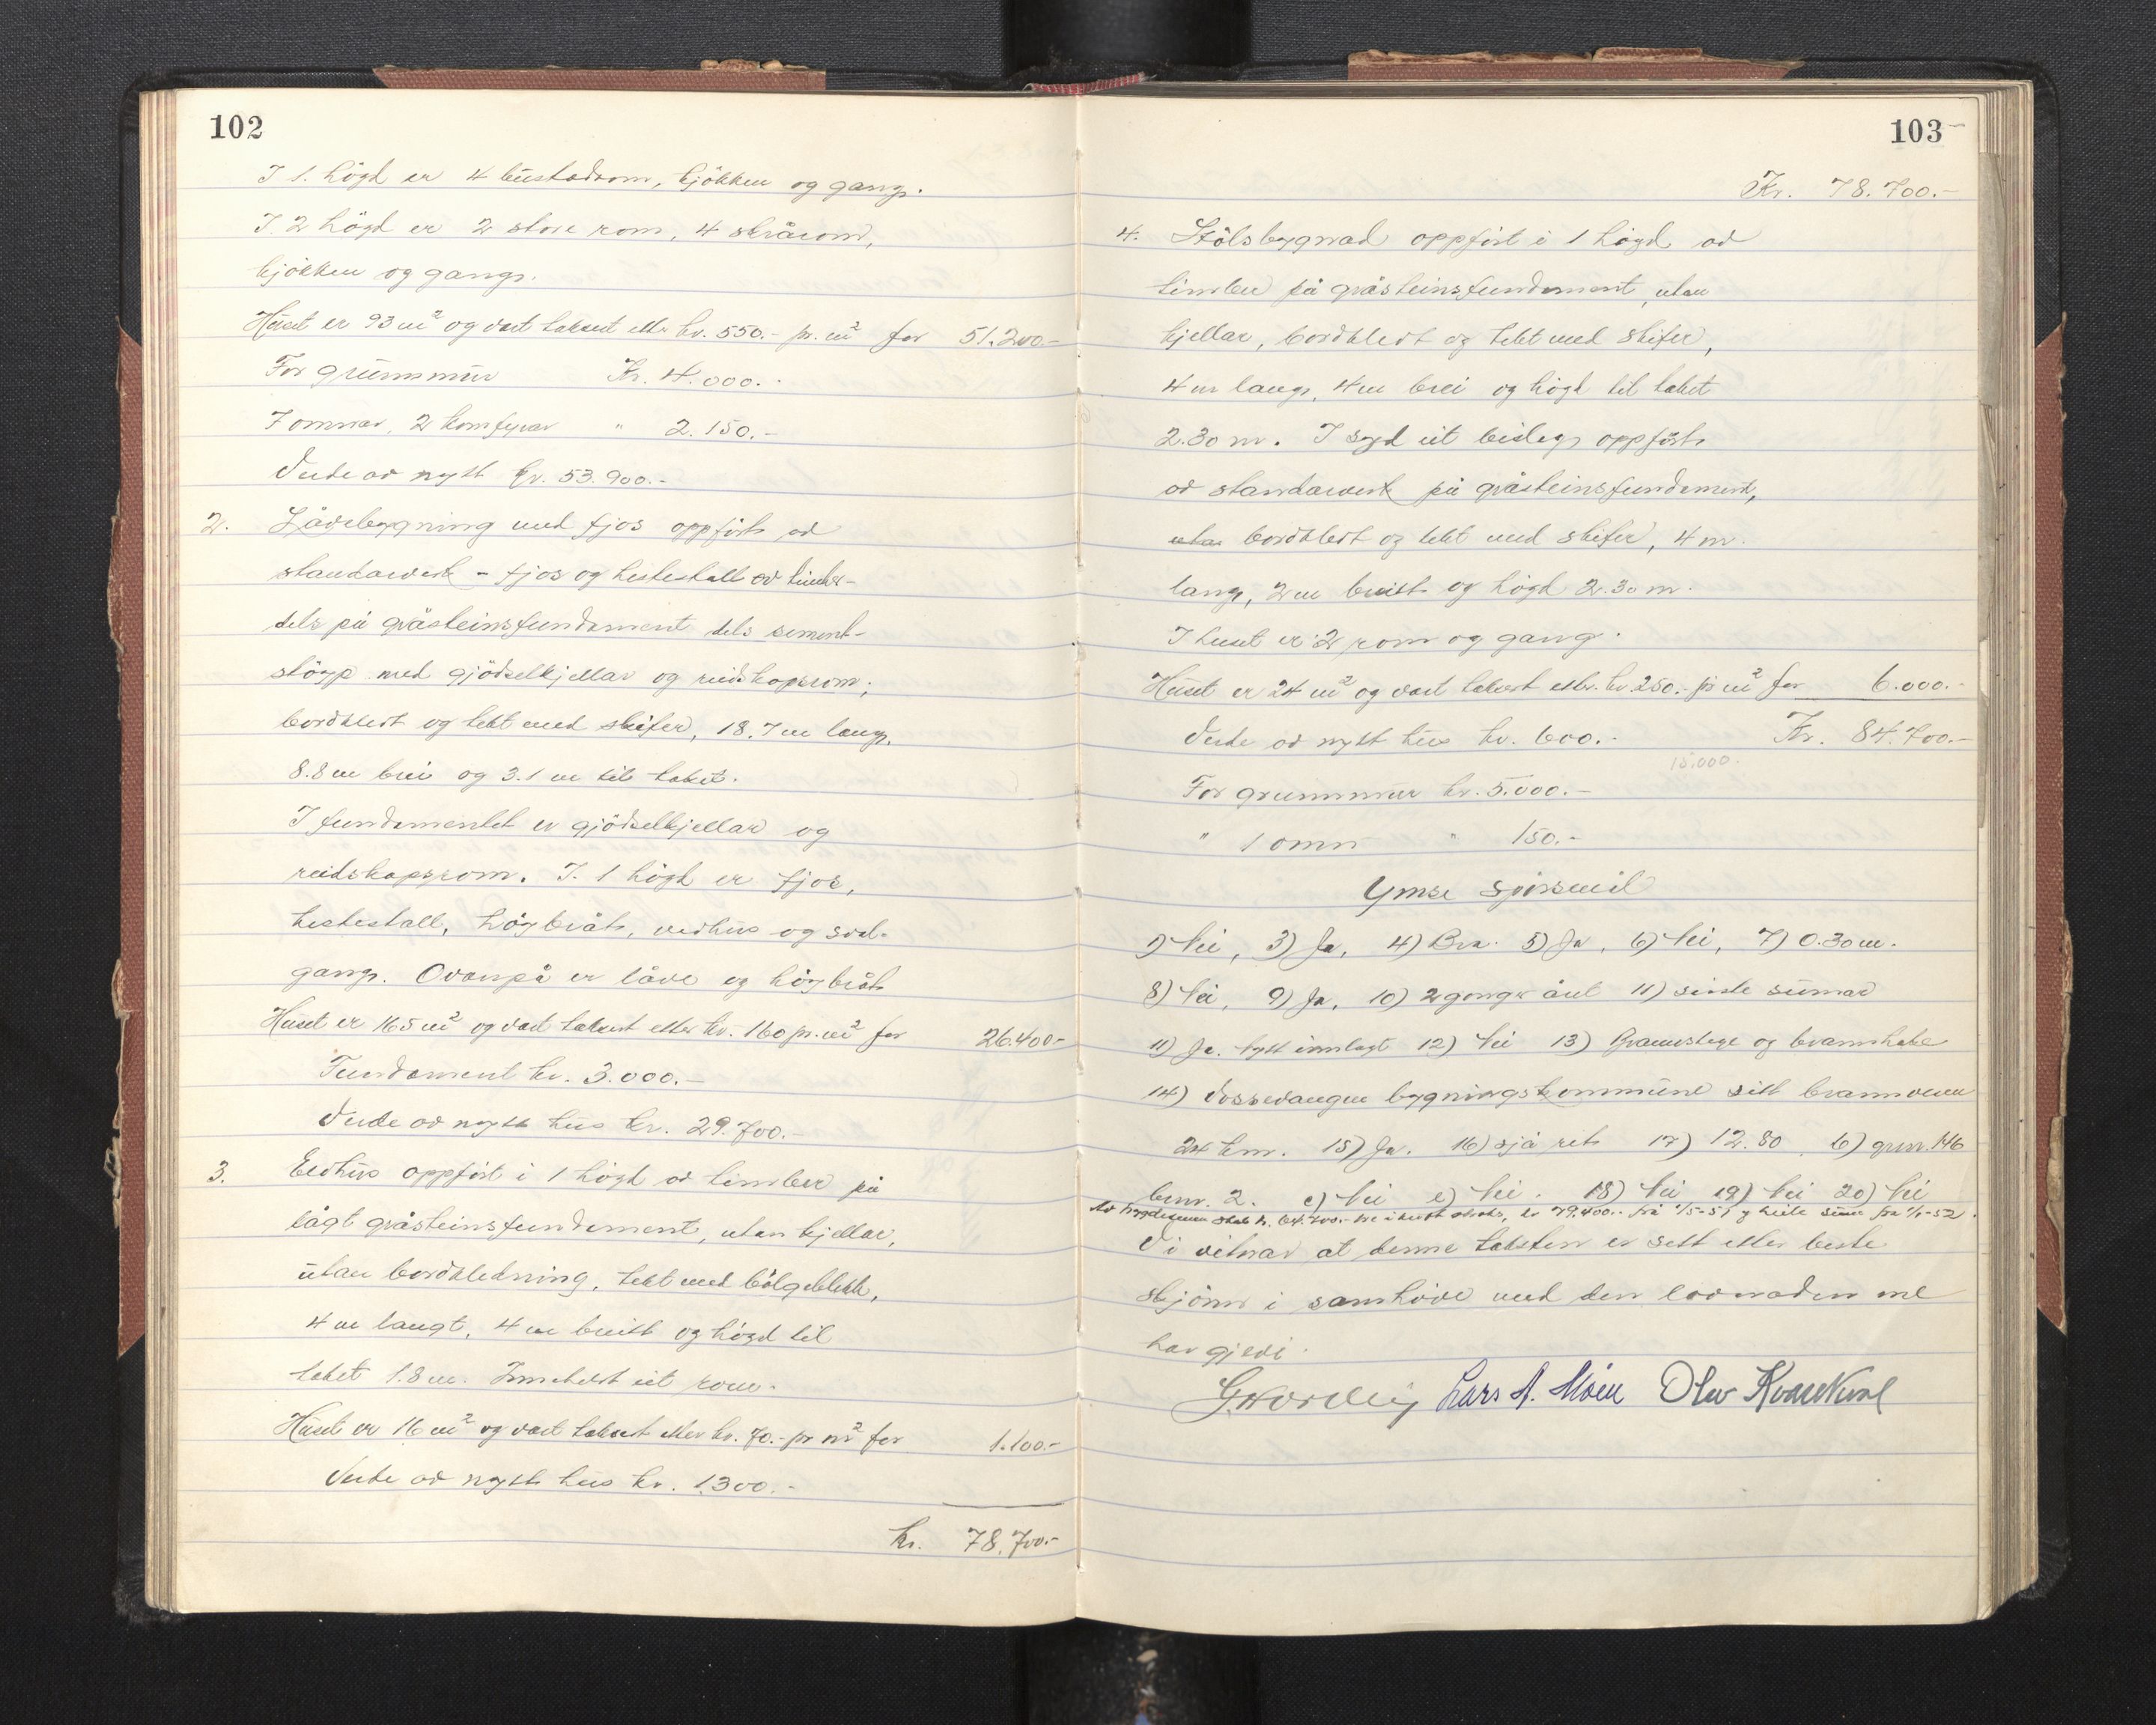 102
I 1. högd er 4 bustadrom, kjökken og gang.
I 2 högd er 2 store rom, 4 skråron,
kjökken og gang.
Huset er 93 m² og vart taksert etter kr. 550.- pr. m² for 51.200.-
For grunnmur Kr. 4.000.-
7 omnar, 2 komfyrar " 2.150.-
Verde av nytt kr. 53.900.-
2. Lövebygning med fjos oppfört av
standarverk - fjos og hestestall av timber-
dels på gråsteinsfundament dels sement-
stöyp med gjödselkjellar og reidskapsrom;
bordkledt og tekt med skifer, 18.7 m lang,
8.8 m brei og 3.1 m til taket.
I fundamentet er gjödselkjellar og
reidskapsrom. I 1 högd er fjos,
hestestall, höybråt, vedhus og sval-
gang. Ovanpå er låve og höybråt
Huset er 165 m² og vart taksert etter kr. 160 pr. m² for 26.400.-
Fundament kr. 3.000.-
Verde av nytt hus kr. 29.700.-
3. Eldhus oppfört i 1 högd av timber på
lågt gråsteinsfundament, utan kjellar,
utan bordkledning, tekt med bölgeblekk,
4 m langt, 4 m breitt og högd til
taket 1.8 m. Inneheld eit rom.
Huset er 16 m² og vart taksert etter kr. 70.- pr m² for 1.100.-
Verde av nytt hus kr. 1.300.-
kr. 78.700.-
103
Kr. 78.700.-
4. Stölsbygnad oppfört i 1 högd av
timber på gråsteinsfundament, utan
kjellar, bordkledt og tekt med skifer,
4 m lang, 4 m brei og högd til taket
2.30 m. I syd eit bislag oppfört
av standarverk på gråsteinsfundament,
utan bordkledt og tekt med skifer, 4 m.
lang, 2 m breitt og högd 2.30 m.
I huset er 2 rom og gang.
Huset er 24 m² og vart taksert etter. kr. 250.- pr m² for 6.000.-
Verde av nytt hus kr. 600.- Kr. 84.700.-
15.000.
For grunnmur kr. 5.000.-
" 1 omn " 150.-
Ymse spörsmål
1) Nei, 3) Ja, 4) Bra. 5) Ja, 6) Nei, 7) 0.30 m.
8) Nei, 9) Ja, 10) 2 gonger året 11) siste sumar
11) Ja. Nytt innlagt 12) Nei 13) Brannstige og brannhake
14) Vossevangen bygningskommune sitt brannvern
24 km. 15) Ja. 16) sjå rit 17) 12.80, b) grnr. 146
bnr. 2. c) Nei e) Nei. 18) Nei 19) Nei 20) Nei
Vi vitnar at denne taksten er sett etter beste
skjönn i samhöve med den lovnaden me
har gjevi.
Lars A. Möen Olav Kvarekval